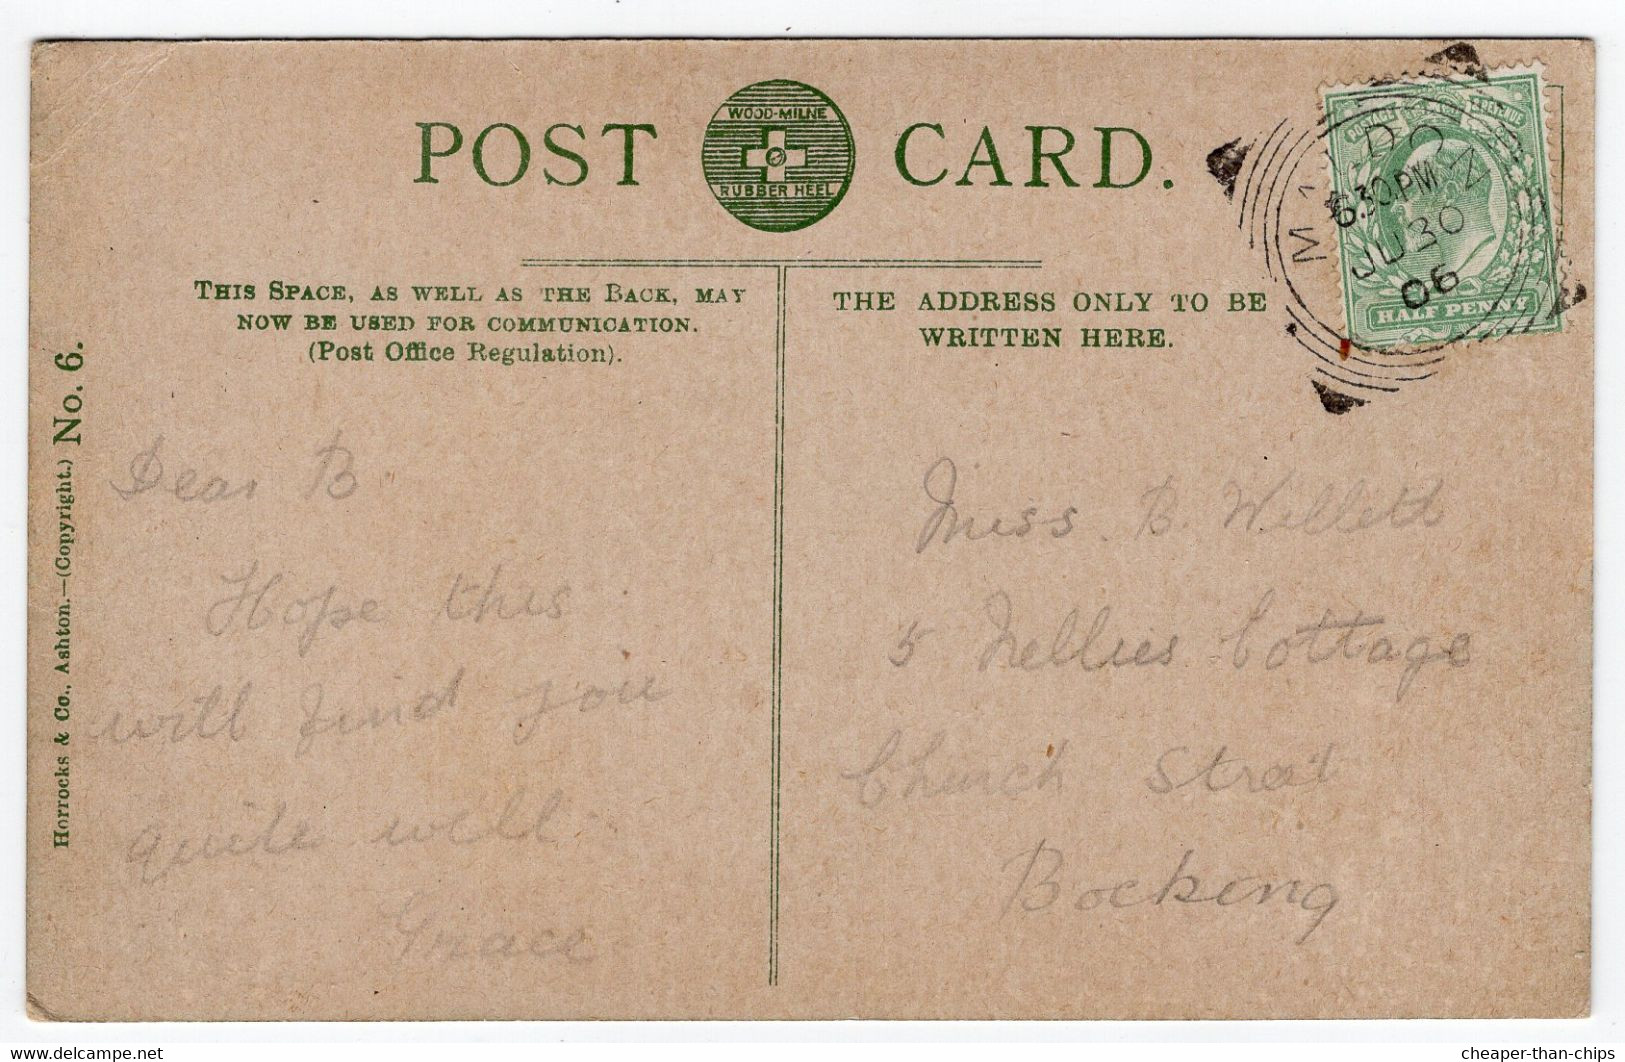 POST CARD.
WOOD-MILNE
RUBBER HEEL
THIS SPACE, AS WELL AS THE BACK, MAY
NOW BE USED FOR COMMUNICATION.
(Post Office Regulation).
THE ADDRESS ONLY TO BE
WRITTEN HERE.
POSTAGE REVENUE
HALF PENNY
6.30PM
JU 30
06
Horrocks & Co., Ashton.—(Copyright.) No. 6.
Dear B.
Hope this
will find you
quite well.
Grace.
Miss. B. Willett
5 Nellies Cottage
Church Street
Bocking
www.delcampe.net
cheaper-than-chips